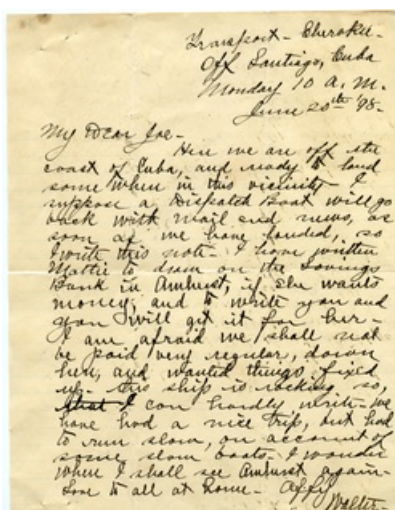 Transport - Cherokee -
Off Santiago, Cuba
Monday 10 A.M.
June 20th '98 -
My Dear Joe -
Here we are off the
coast of Cuba, and ready to land
some when in this vicinity. I
suppose a Dispatch Boat will go
back with mail and news, as
soon as we have landed, so
I write this note - I have written
Mattie to draw on the Savings
Bank in Amherst, if she wants
money; and to write you and
you will get it for her -
I am afraid we shall not
be paid very regular, down
here, and wanted things fixed
up - this ship is rocking so,
that I can hardly write - we
have had a nice trip, but had
to run slow, on account of
some slow boats - I wonder
when I shall see Amherst again -
Love to all at home - Affy
Walter -